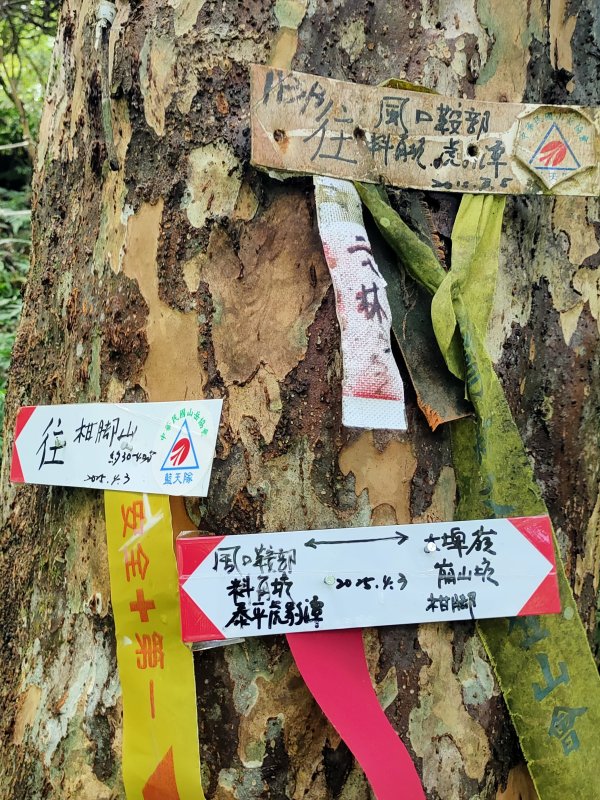 往
風口鞍部
料角坑 虎豹潭
六林
往 柑腳山
2025.4.3
中華民國山岳協會
藍天隊
安全+第一
風口鞍部
料角坑
泰平虎豹潭
2025.4.3
大埤嶺
崩山坑
柑腳
山會